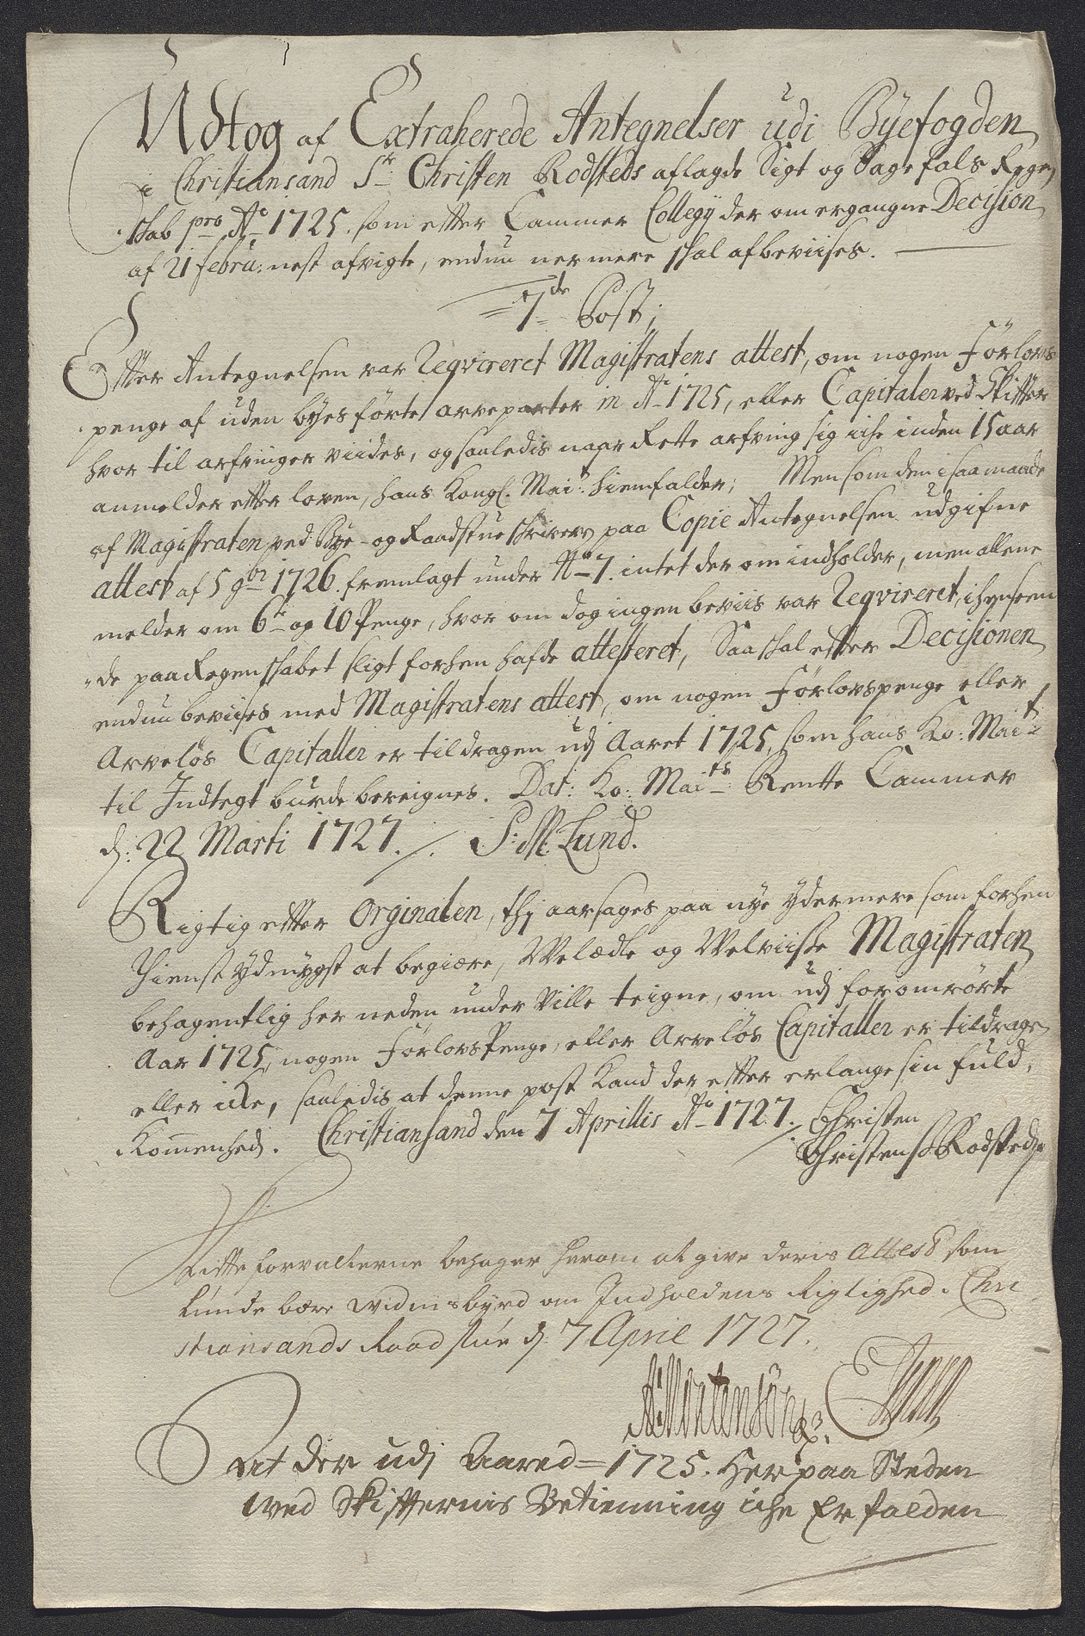 Udtog af Extraherede Antegnelser udi Byefogden
i Christiansand Sr Christen Rodsteds aflagde Sigt og Sagefals Regen
skab pro Ao 1725. som efter Cammer Collegij der om ergangne Decision
af 21 febru: nest afvigte, endnu nermere skal afbeviises.
7de Post;
Efter Antegnelsen var Reqvireret Magistratens attest, om nogen Førlovs
penge af uden byes førte arveparter in Ao 1725, eller Capitaler ved Skifter
hvor til arfvinger viides, og saaledis naar Rette arfving sig iche inden 15 aar
anmelder efter loven, hans Kongl. Mait: hiemfalder; Men som den i saa maade
af Magistraten ved Bye- og Raadstueskriver paa Copie Antegnelsen udgifne
attest af 5 9br 1726. fremlagt under No 7. intet der om indholder, men allene
melder om 6te og 10 Penge, hvor om dog ingen beviis var Reqvireret, i henseen
de paa Regenskabet sligt forhen hafde attesteret, Saa skal efter Decisionen
endnu beviises med Magistratens attest, om nogen Førlovspenge eller
Arveløs Capitaller er tildragen udj Aaret 1725, som hans Ko: Mait:
til Indtegt burde beregnes. Dat: Ko: Maits: Rente Cammer
d: 22 Marti 1727. S: M: Lund.
Rigtig efter Orginalen, thj aarsages paa nye ydermere som forhen
tienst ydmygst at begiære, Welædle og Welviisse Magistraten
behagentlig her neden under Ville teigne, om udj foromrørte
Aar 1725, nogen Førlovs Penge, eller Arveløs Capitaller er tildragen
eller ikke, saaledis at denne post Kand der efter erlange sin fuld,
Kommenhed. Christiansand den 7 Aprillis Ao 1727. Christen
Christens: Rodsted
Skifteforvalterne behager herom at give deris Attest som
kunde bære widnisbyrd om Indholdens Rigtighed. Chri
stiansands Raadstue d: 7 April 1727.
A: Mortensøn
At der udj Aared 1725. Her paa Steden
wed Skifternis Betienning iche Er falden